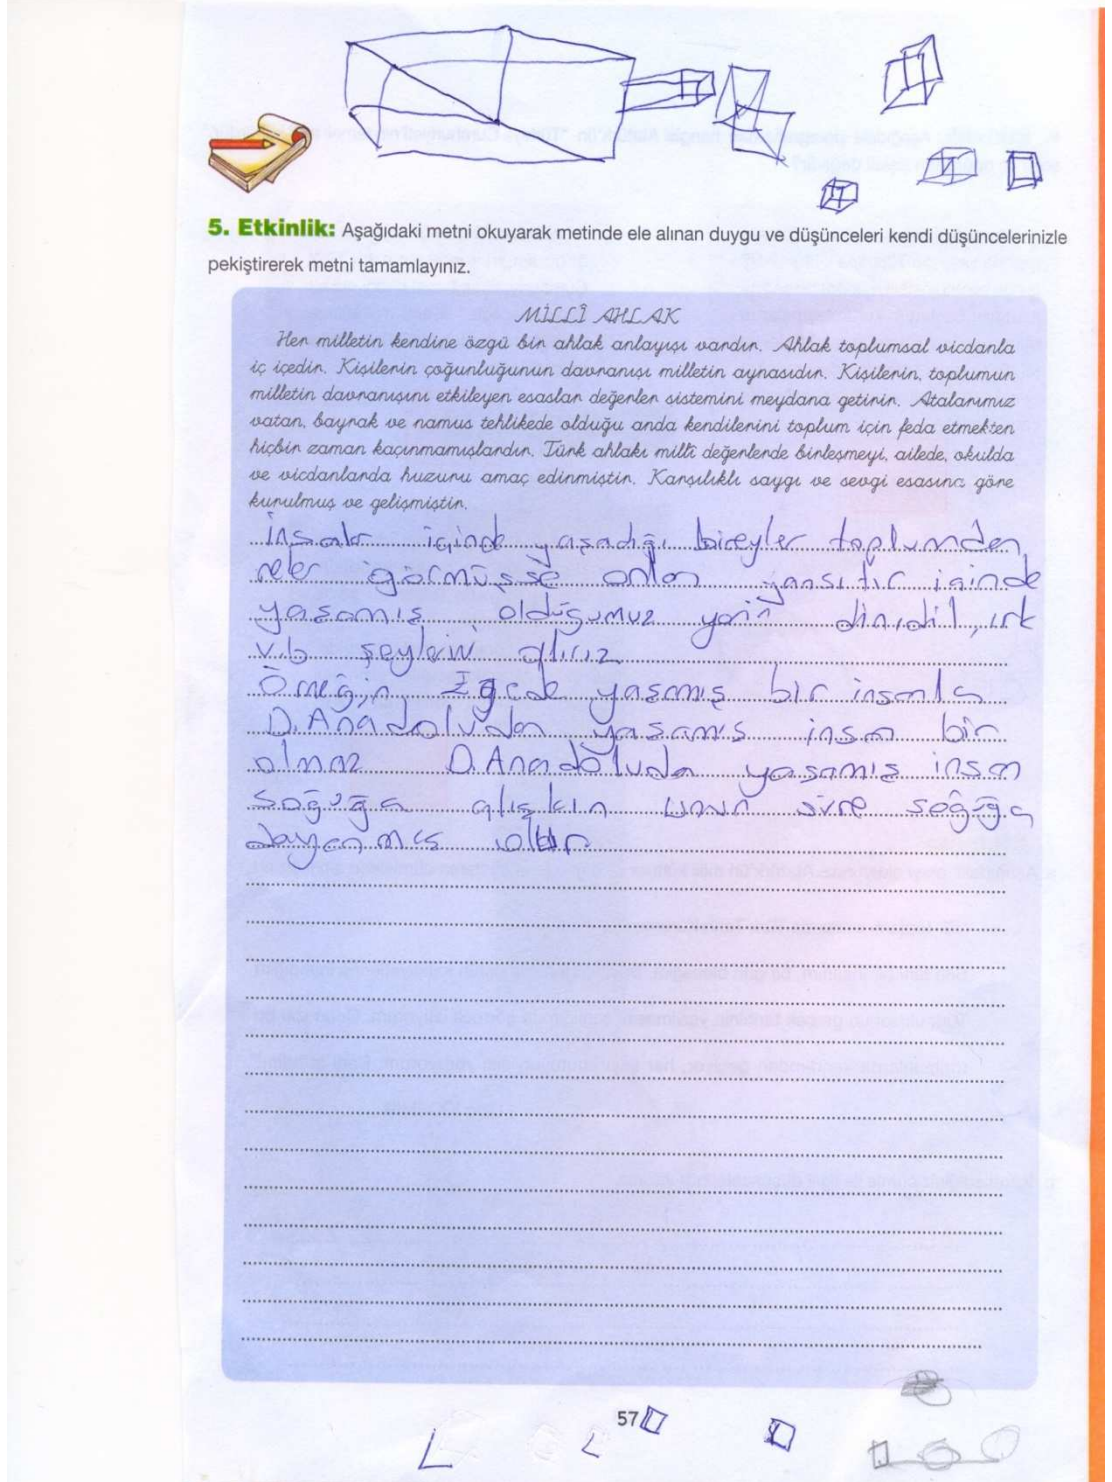 5. Etkinlik: Aşağıdaki metni okuyarak metinde ele alınan duygu ve düşünceleri kendi düşüncelerinizle
pekiştirerek metni tamamlayınız.
MİLLÎ AHLAK
Her milletin kendine özgü bir ahlak anlayışı vardır. Ahlak toplumsal vicdanla
iç içedir. Kişilerin çoğunluğunun davranışı milletin aynasıdır. Kişilerin, toplumun
milletin davranışını etkileyen esaslar değerler sistemini meydana getirir. Atalarımız
vatan, bayrak ve namus tehlikede olduğu anda kendilerini toplum için feda etmekten
hiçbir zaman kaçınmamışlardır. Türk ahlakı millî değerlerde birleşmeyi, ailede, okulda
ve vicdanlarda huzuru amaç edinmiştir. Karşılıklı saygı ve sevgi esasına göre
kurulmuş ve gelişmiştir.
İnsalar içinde yaşadığı bireyler toplumdan
neler görmüşse onları yansıtır içinde
yaşamış olduğumuz yerin din, dil, ırk
v.b şeylerini alırız
Örneğin Egede yaşamış bir insanla
D. Anadoluda yaşamış insan bir
olmaz D. Anadoluda yaşamış insan
soğuğa alışkın uzun süre soğuğa
dayanmış olur
57